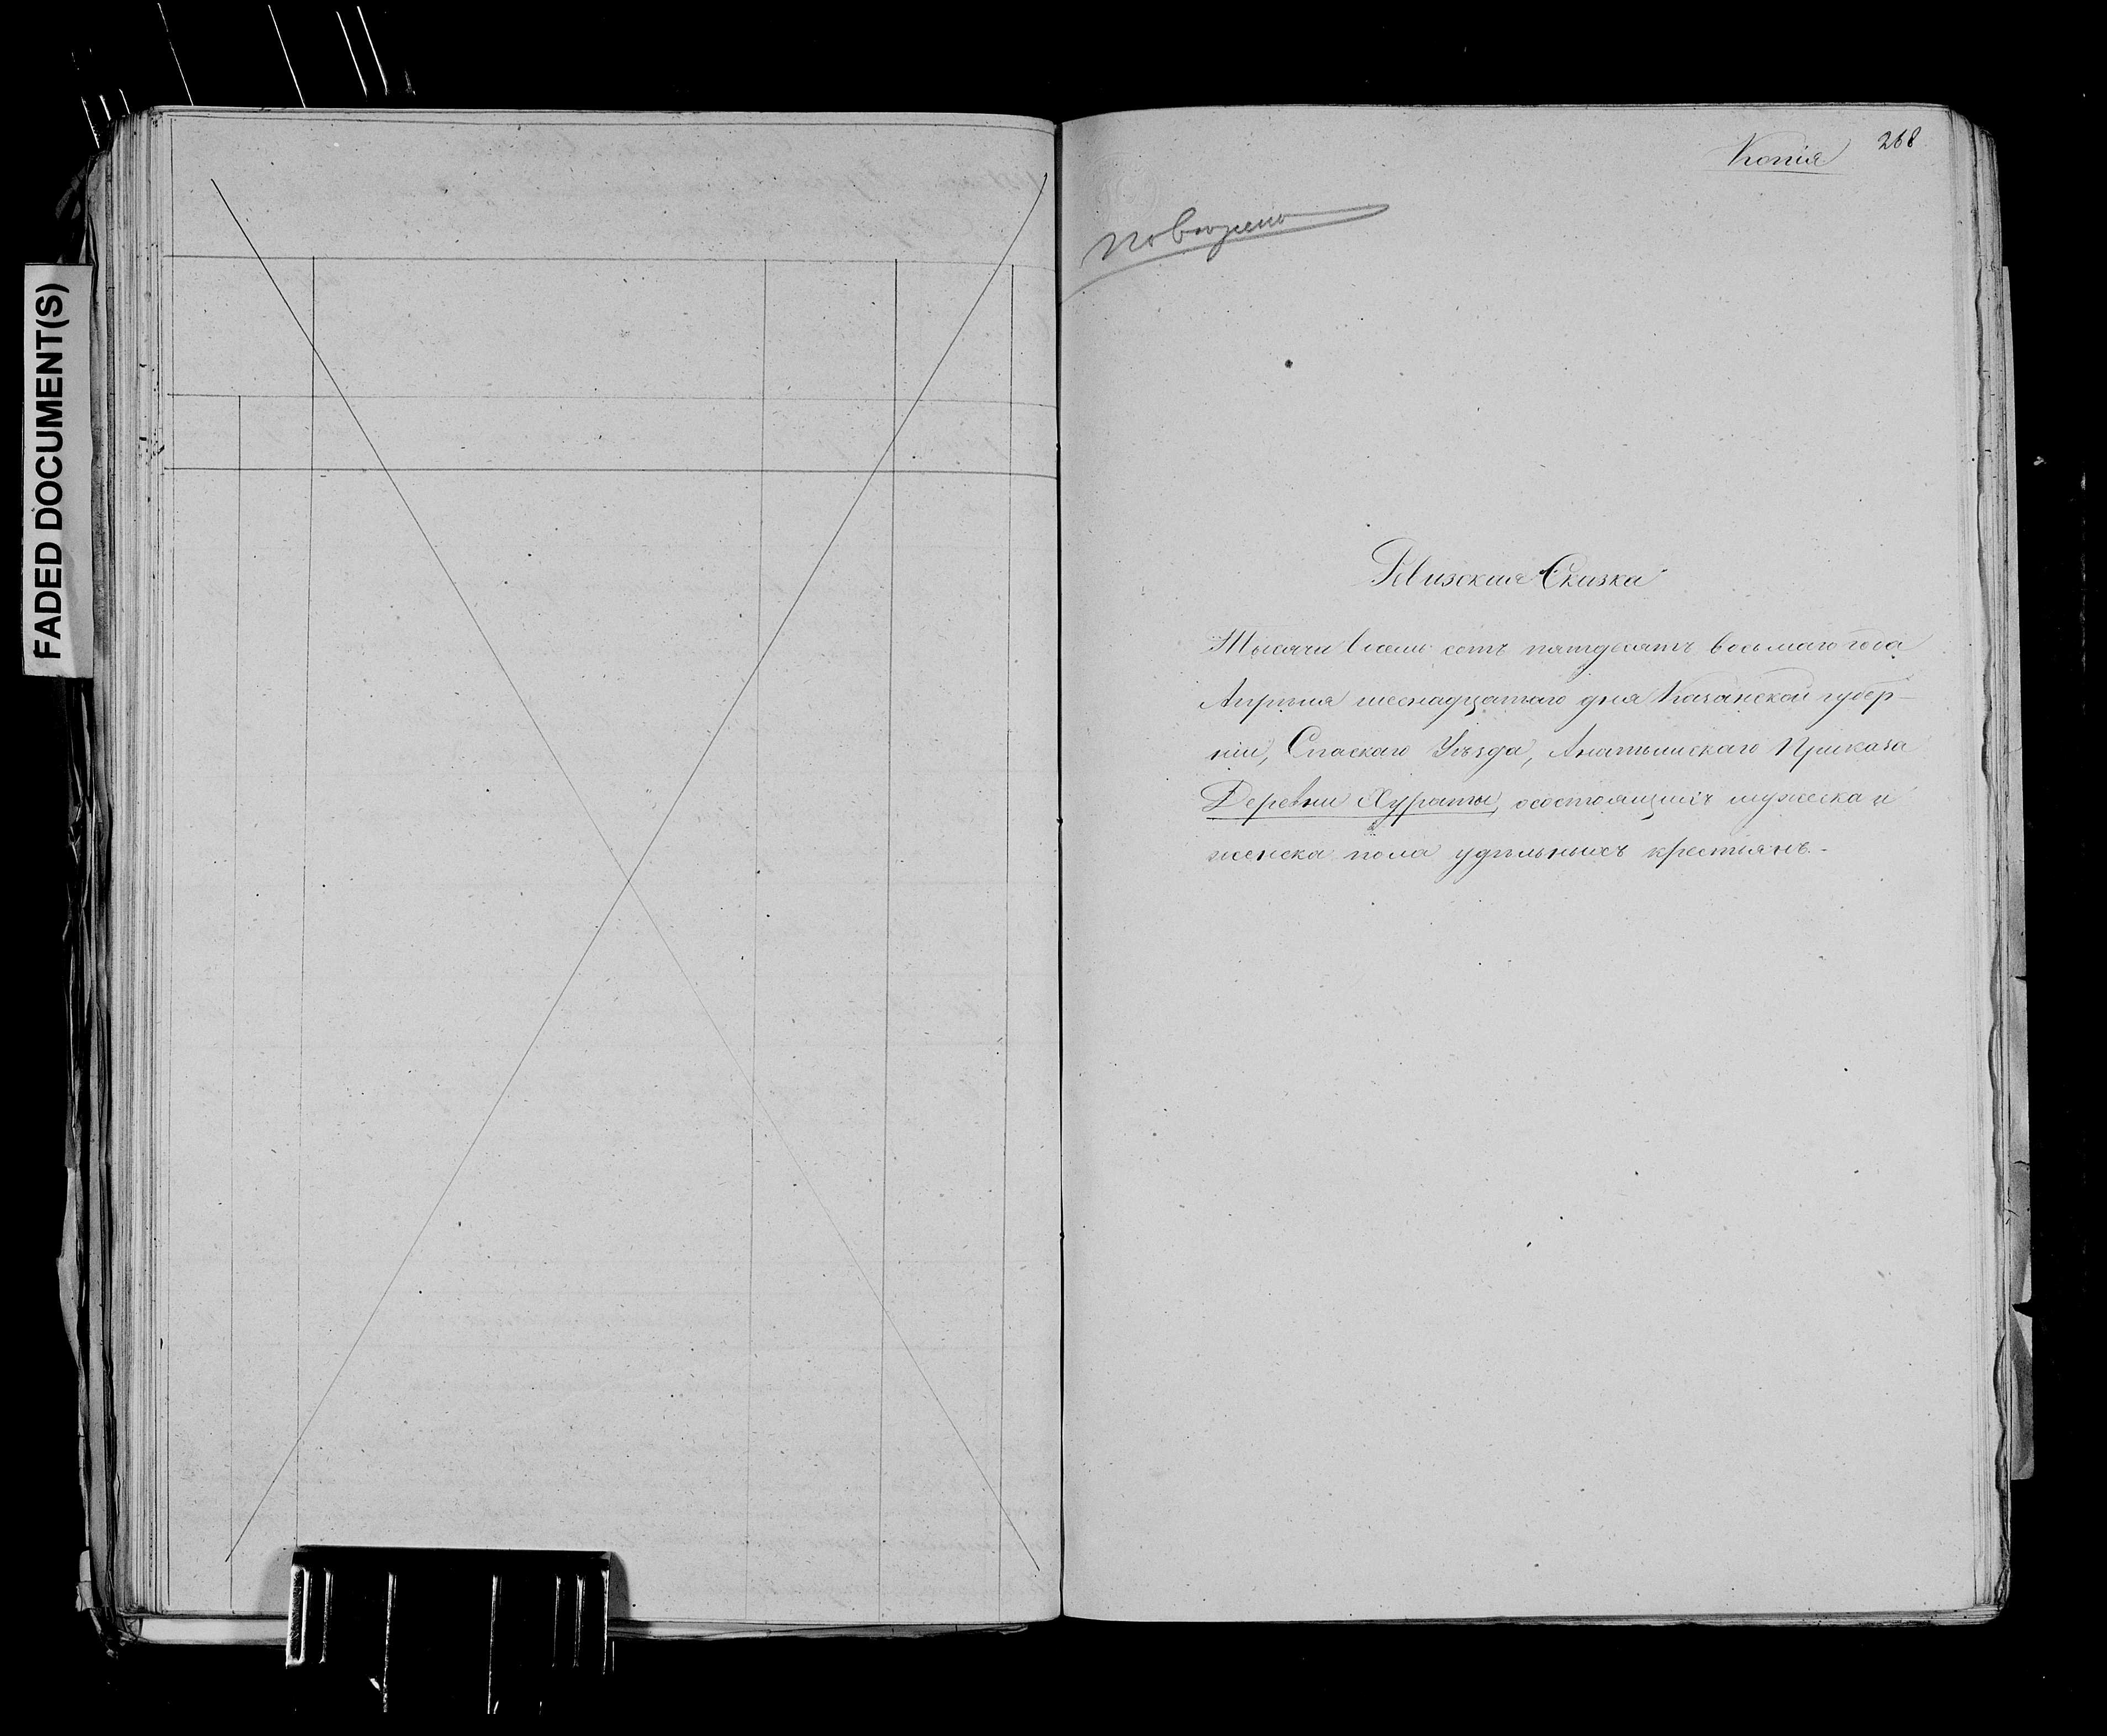 FADED DOCUMENT(S)
Копія
268
повторено
Ревизская Сказка
Тысяча восемь сотъ пятдесятъ восьмаго года
Апрѣля шеснадцатаго дня Казанской губер-
ніи, Спаскаго Уѣзда, Приказа
Деревни Хураты, о состоящихъ мужеска и
женска пола удѣльныхъ крестьянъ.-